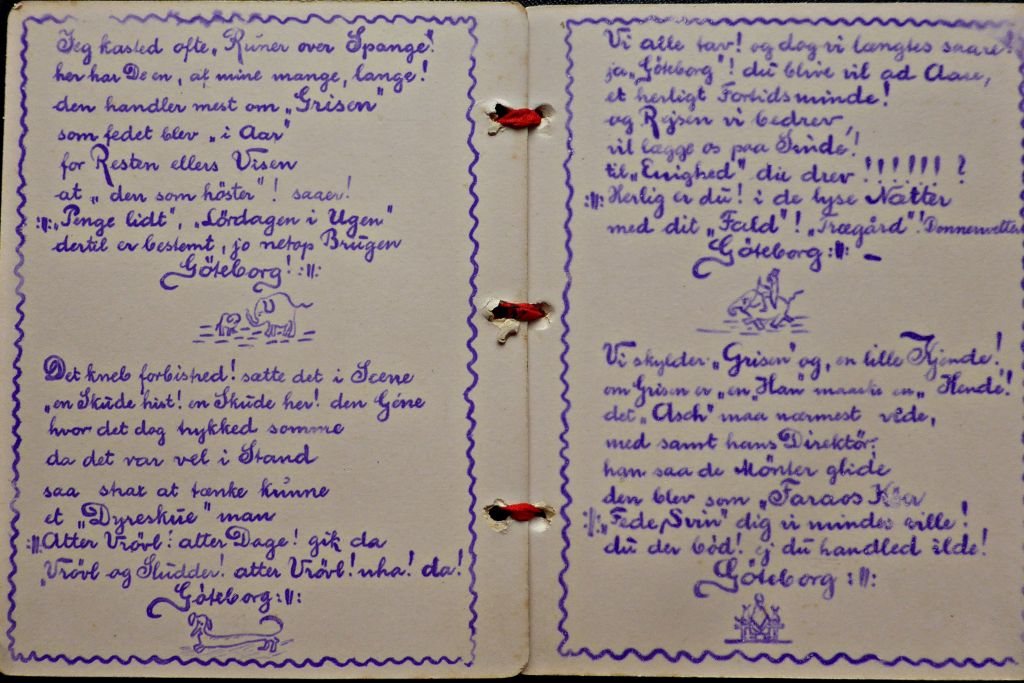 Jeg kasted ofte „Runer over Spange"!
her har De en, af mine mange, lange!
den handler mest om „Grisen"
som fedet blev „i Aar"
for Resten ellers Visen
at „den som höster"! saaer!
:||: „Penge lidt", „Lördagen i Ugen"
dertil er bestemt, jo netop Brugen
Göteborg! :||:
Det kneb forbistred! satte det i Scene
„en Skude hist! en Skude her! den Géne
hvor det dog trykked somme
da det var vel i Stand
saa strax at tænke kunne
et „Dyreskue" man
:||: Atter Vrövl! atter Dage! gik da
„Vrövl og Sludder! atter Vrövl! uha! da!
Göteborg :||:
Vi alle tav! og dog vi længtes saare!
ja „Göteborg"! du blive vil ad Aare,
et herligt Fortidsminde!
og Rejsen vi bedrev,
vil lægge os paa Sinde!
til „Enighed" du drev !!!!!! ?
:||: Herlig er du! i de lyse Nætter
med dit „Fald"! „Trægård"! Donnerwetter
Göteborg :||: –
Vi skylder „Grisen" og, en lille Kjende!
om Grisen er „en Han" maaske en „Hende!
det „Asch" maa nærmest vide,
med samt hans Direktör;
han saa de Mönter glide
den blev som „Faraos
:||: „Fede Svin" dig vi mindes ville!
du der böd! ej du handled ilde!
Göteborg :||: